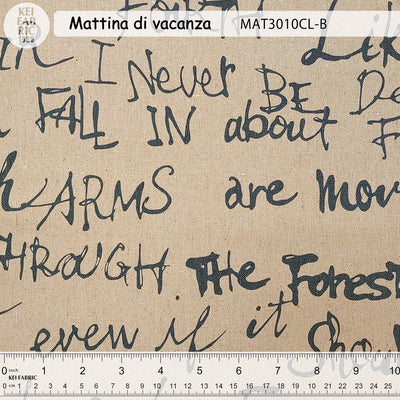 KEI
FABRIC
Mattina di vacanza MAT3010CL-B
I Never BE
FALL IN about F
ARMS are mor
THROUGH. The Forest
even if it Shou
0 inch 1 2 3 4 5 6 7 8 9 10
KEI FABRIC
0 cm 1 2 3 4 5 6 7 8 9 10 11 12 13 14 15 16 17 18 19 20 21 22 23 24 25